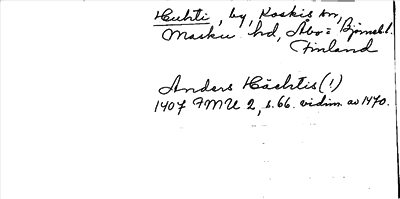 Huhti, by, Koskis sn,
Masku hd, Åbo = Björneb. l.
Finland
Anders Håchtis (!)
1407 FMU 2, s. 66. vidim. av 1470.